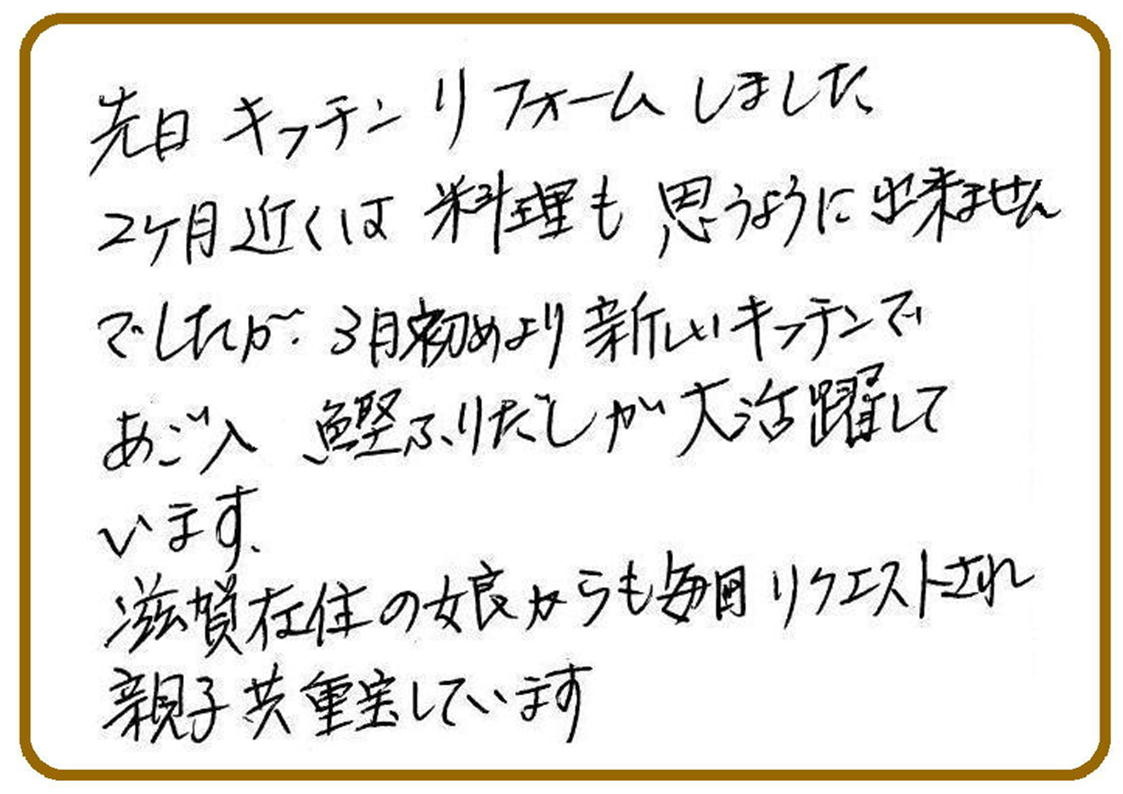 先日 キッチン リフォーム しました
2ヶ月近くは 料理も 思うように 出来ません
でしたが、3月初めより 新しいキッチンで
あご入 鰹ふりだしが 大活躍して
います、
滋賀在住の娘からも毎回 リクエストされ
親子共重宝しています